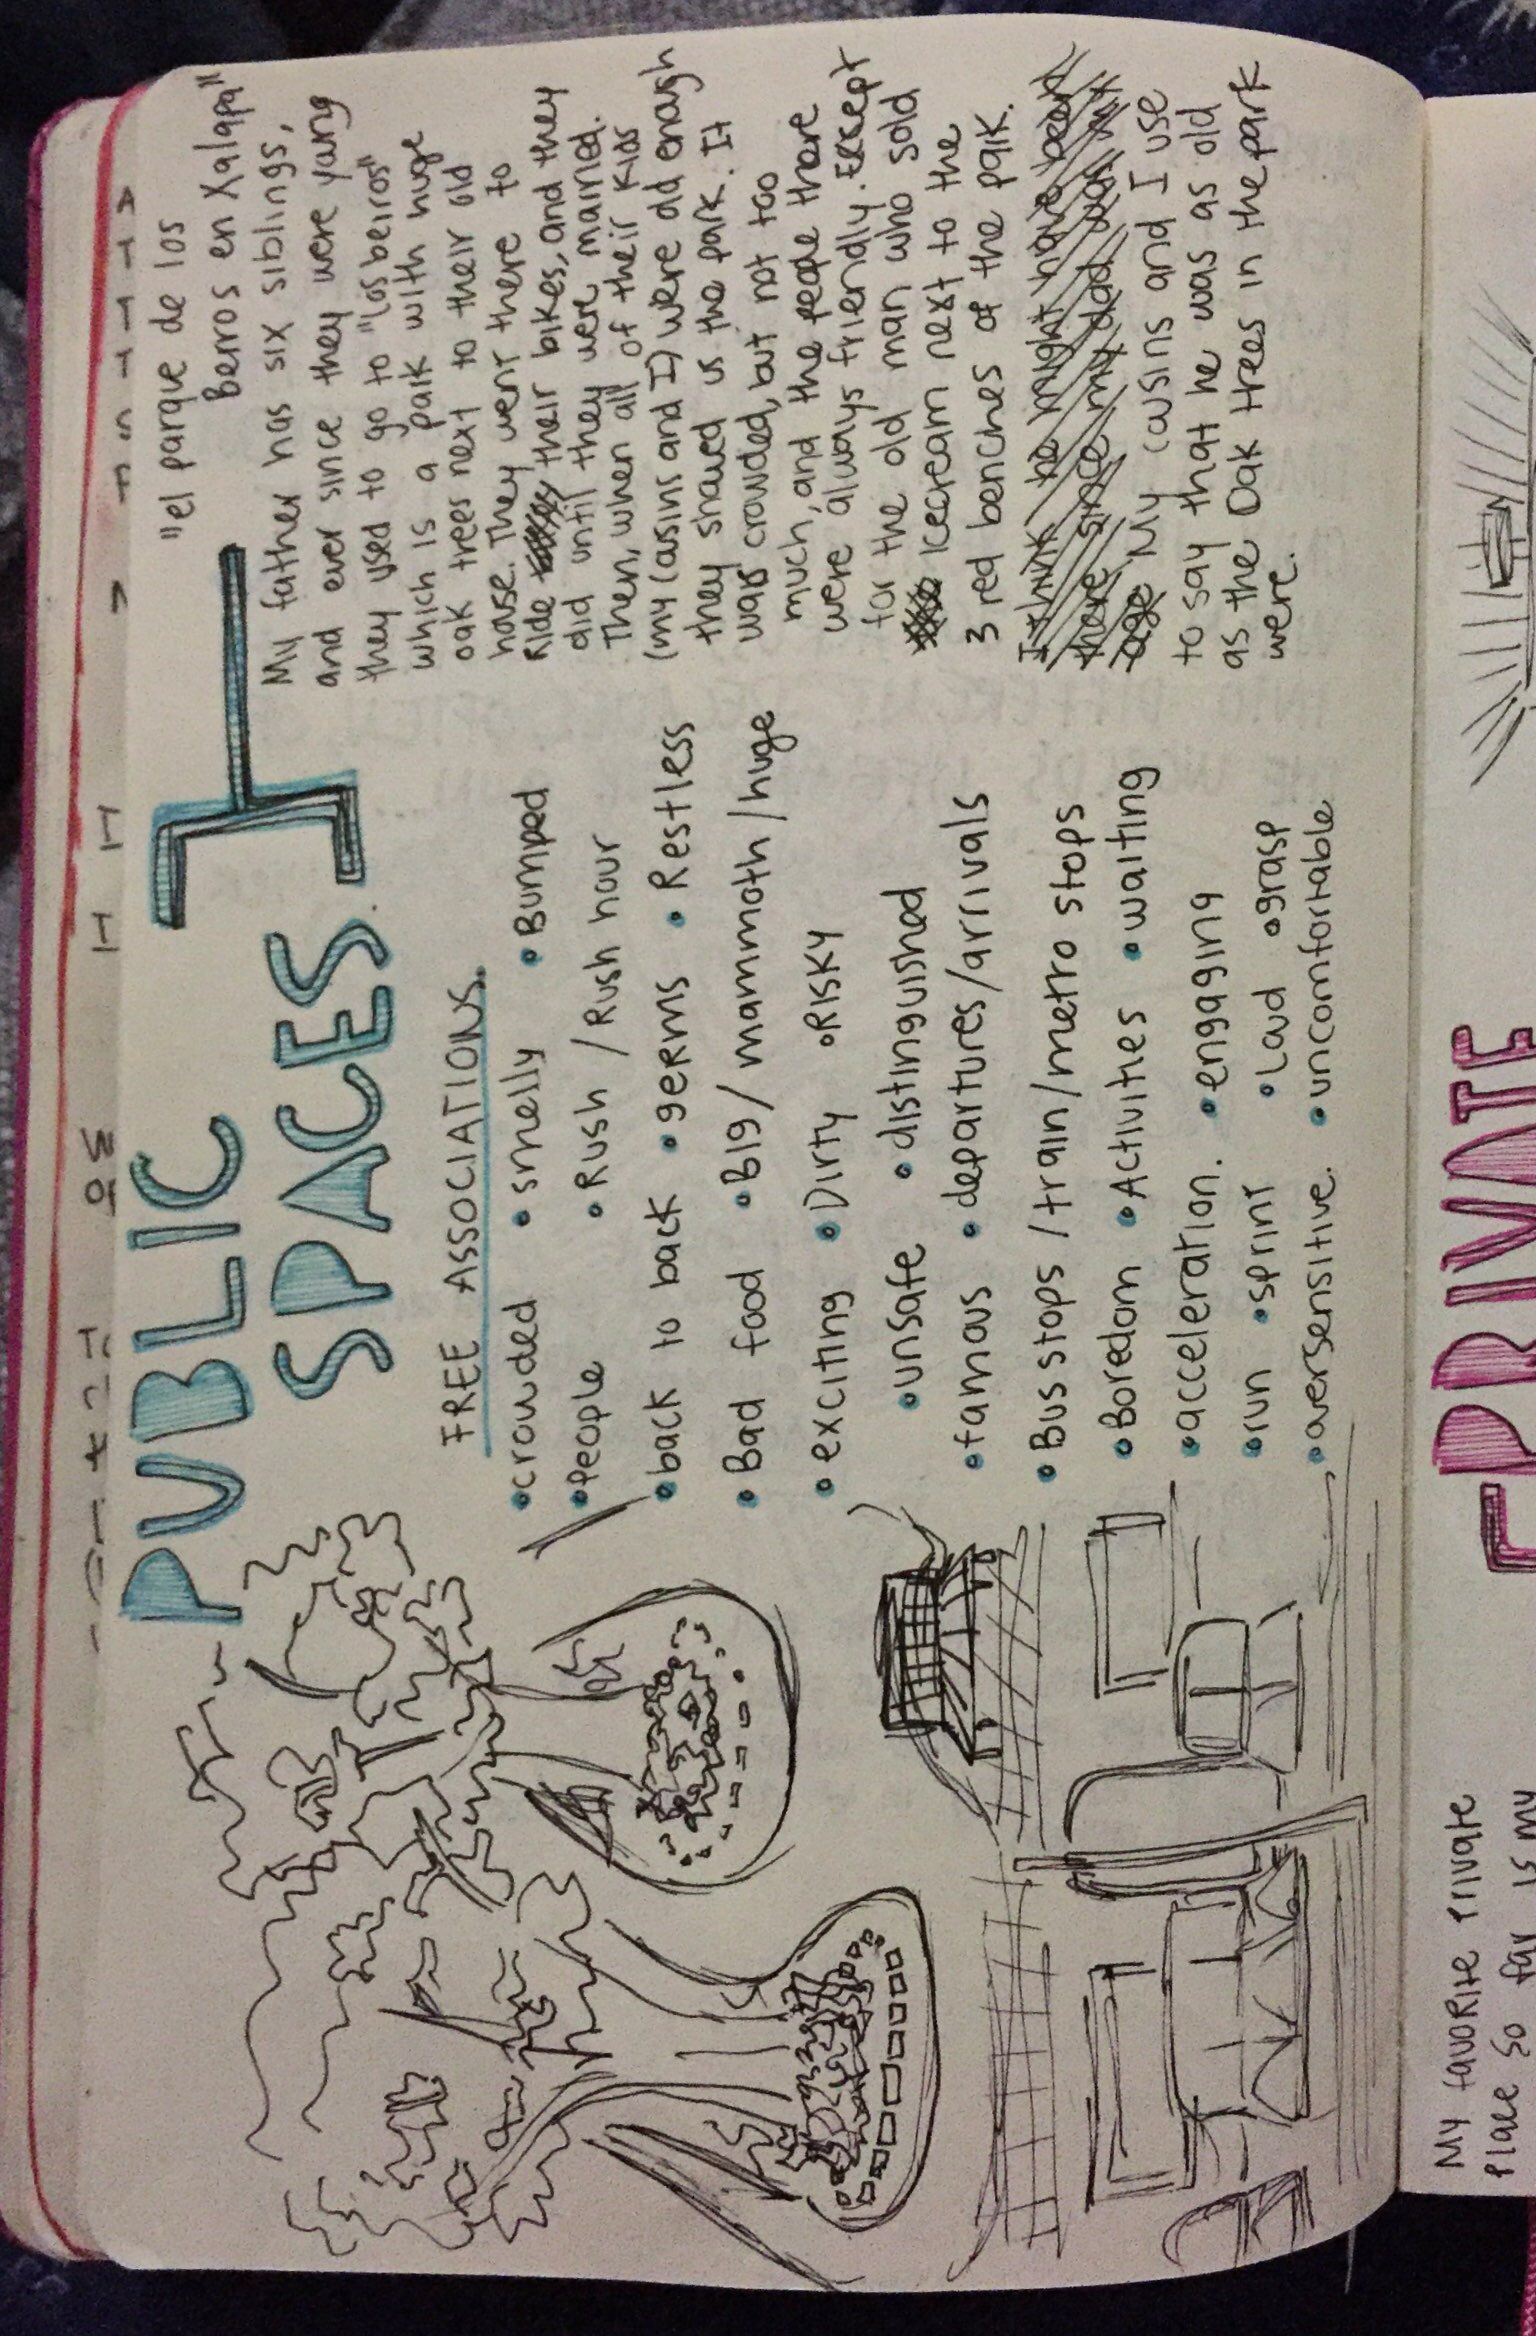 PUBLIC
SPACES
FREE ASSOCIATIONS.
•crowded •smelly •Bumped
•People •Rush /Rush hour
•back to back •germs •Restless
•Bad food •Big/mammoth/huge
•exciting •Dirty •Risky
•unsafe •distinguished
•famous •departures/arrivals
•Bus stops /train/metro stops
•Boredom •Activities •waiting
•acceleration. •engaging
•run •sprint •Loud •grasp
•oversensitive. •uncomfortable
"el parque de los
Berros en Xalapa"
My father has six siblings,
and ever since they were yang
they used to go to "los berros"
which is a park with huge
oak trees next to their old
house. They went there to
Ride their bikes, and they
did until they were married.
Then, when all of their kids
(my cusins and I) were old enagh
they shawed us the park. It
was crowded, but not too
much, and the people there
were always friendly. Except
for the old man who sold
icecream next to the
3 red benches of the park.
I think he might have been
there since my dad was my
age My cusins and I use
to say that he was as old
as the Oak trees in the park
were.
PRIVATE
My favorite private
place so far is my